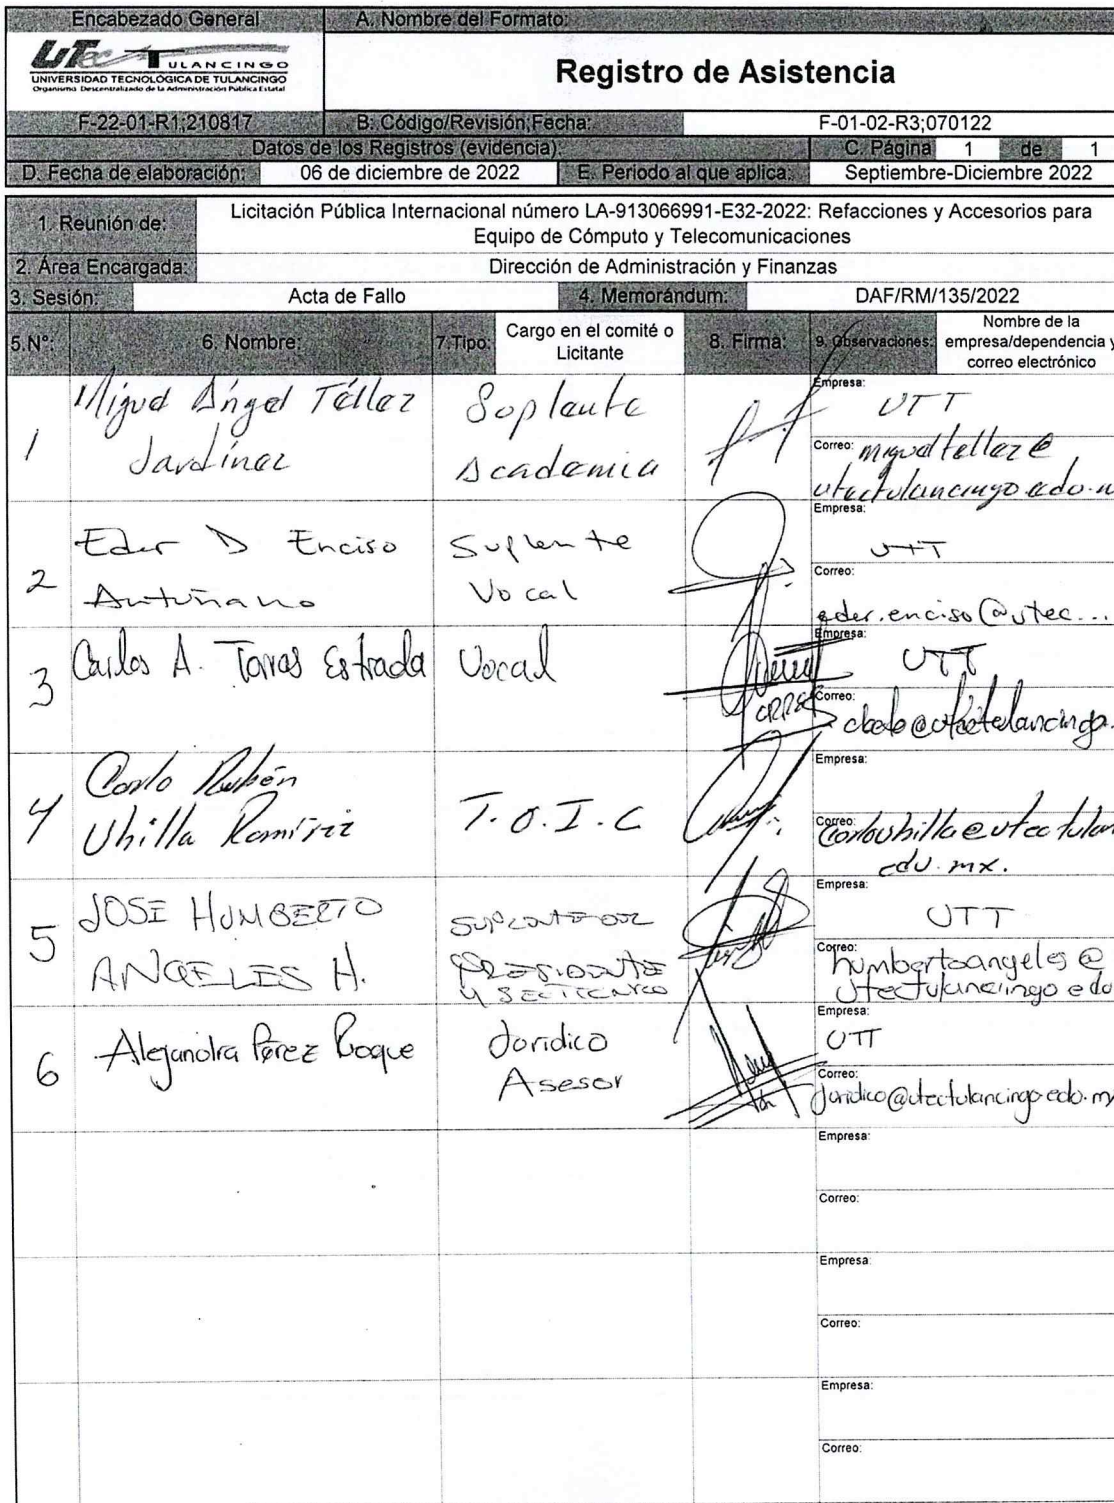 Encabezado General
A. Nombre del Formato:
UTec TULANCINGO
UNIVERSIDAD TECNOLÓGICA DE TULANCINGO
Organismo Descentralizado de la Administración Pública Estatal
Registro de Asistencia
F-22-01-R1;210817
B: Código/Revisión;Fecha:
F-01-02-R3;070122
Datos de los Registros (evidencia):
C. Página 1 de 1
D. Fecha de elaboración: 06 de diciembre de 2022
E. Periodo al que aplica: Septiembre-Diciembre 2022
1. Reunión de:
Licitación Pública Internacional número LA-913066991-E32-2022: Refacciones y Accesorios para
Equipo de Cómputo y Telecomunicaciones
2. Área Encargada: Dirección de Administración y Finanzas
3. Sesión: Acta de Fallo
4. Memorándum: DAF/RM/135/2022
5.N°:
6. Nombre:
7.Tipo:
Cargo en el comité o
Licitante
8. Firma:
9. Observaciones:
Nombre de la
empresa/dependencia y
correo electrónico
1
Miguel Ángel Téllez
Jardínez
Suplente
Academia
Empresa:
UTT
Correo: migueltellez@
utectulancingo.edo.m
2
Eder D Enciso
Antuñano
Suplente
Vocal
Empresa:
UTT
Correo:
eder.enciso@utec...
3
Carlos A. Torres Estrada
Vocal
Empresa:
UTT
Correo:
4
Carlo Rubén
Ubilla Ramírez
T.O.I.C
Empresa:
Correo:
carloubilla@utectulan
edu.mx.
5
JOSE HUMBERTO
ANGELES H.
SUPLENTE DEL
PRESIDENTE
Y SECTECNICO
Empresa:
UTT
Correo:
humbertoangeles@
utectulancingo edu
6
Alejandra Pérez Roque
Jurídico
Asesor
Empresa:
UTT
Correo:
Juridico@utectulancingo.edu.mx
Empresa:
Correo:
Empresa:
Correo:
Empresa:
Correo: